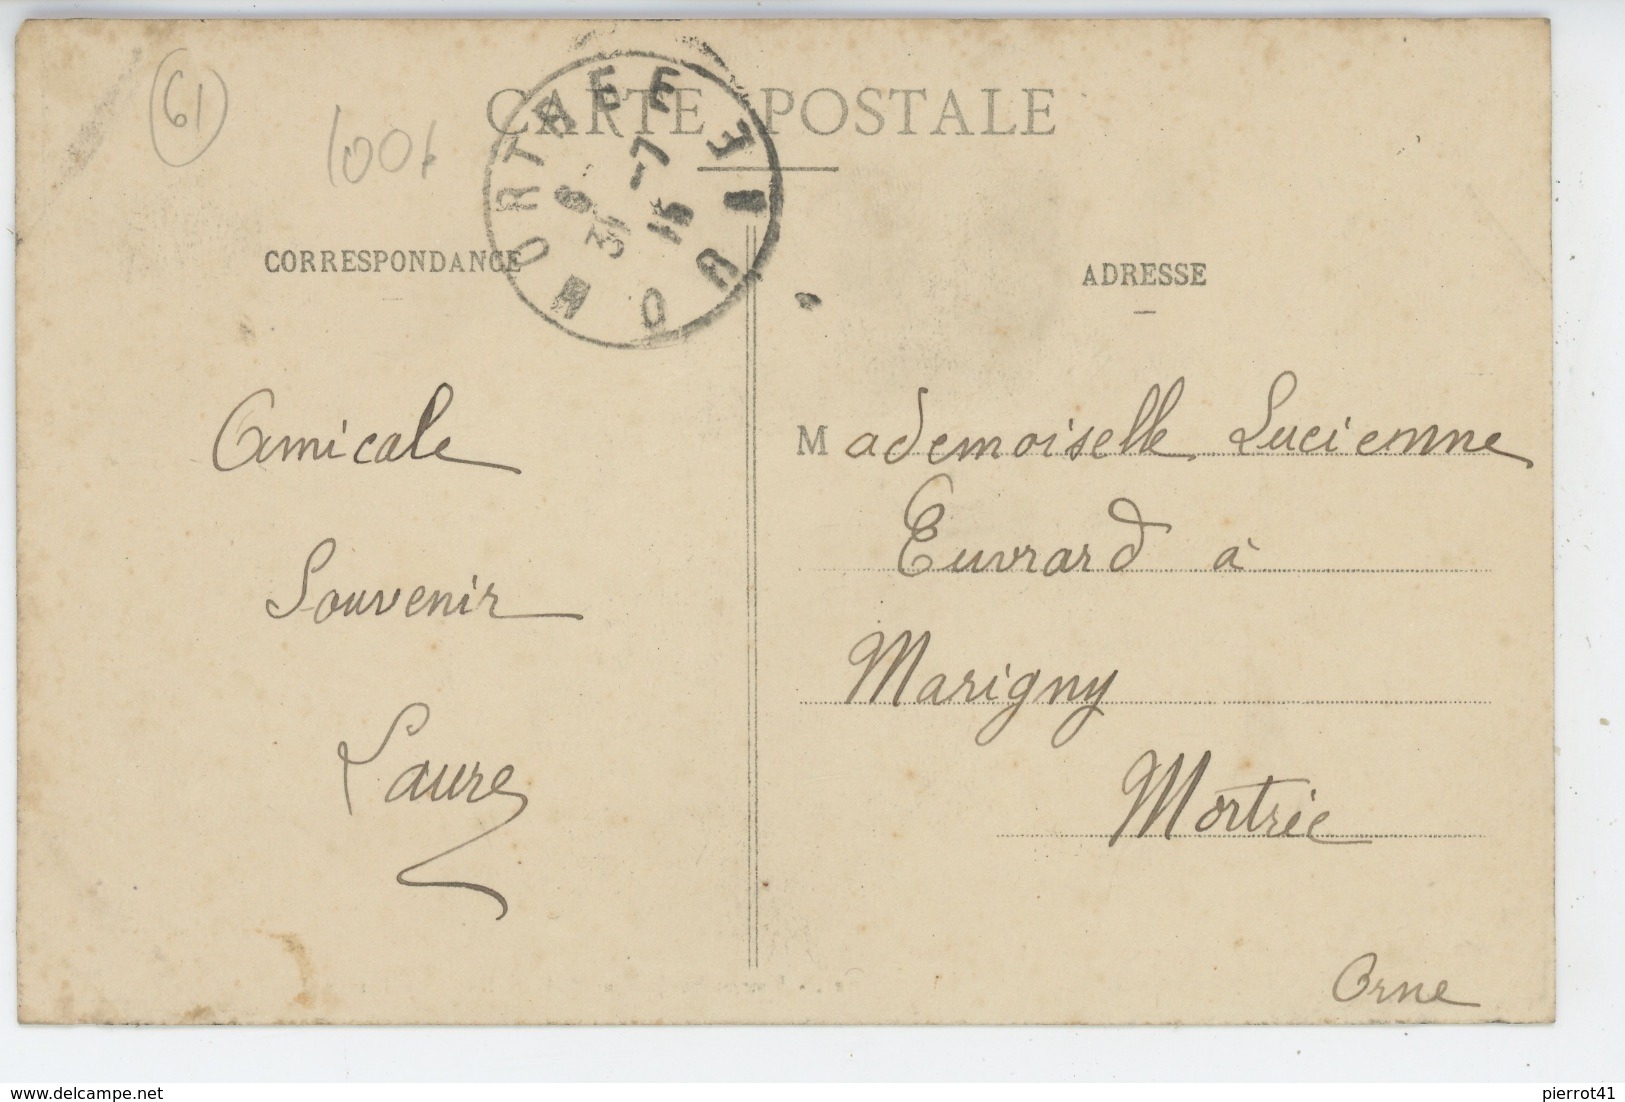 61
CARTE POSTALE
MORTREE
31 -7
15
CORRESPONDANCE
ADRESSE
Amicale
Souvenir
Laure
Mademoiselle Lucienne
Euvrard à
Marigny
Mortrée
Orne
www.delcampe.net
pierrot41